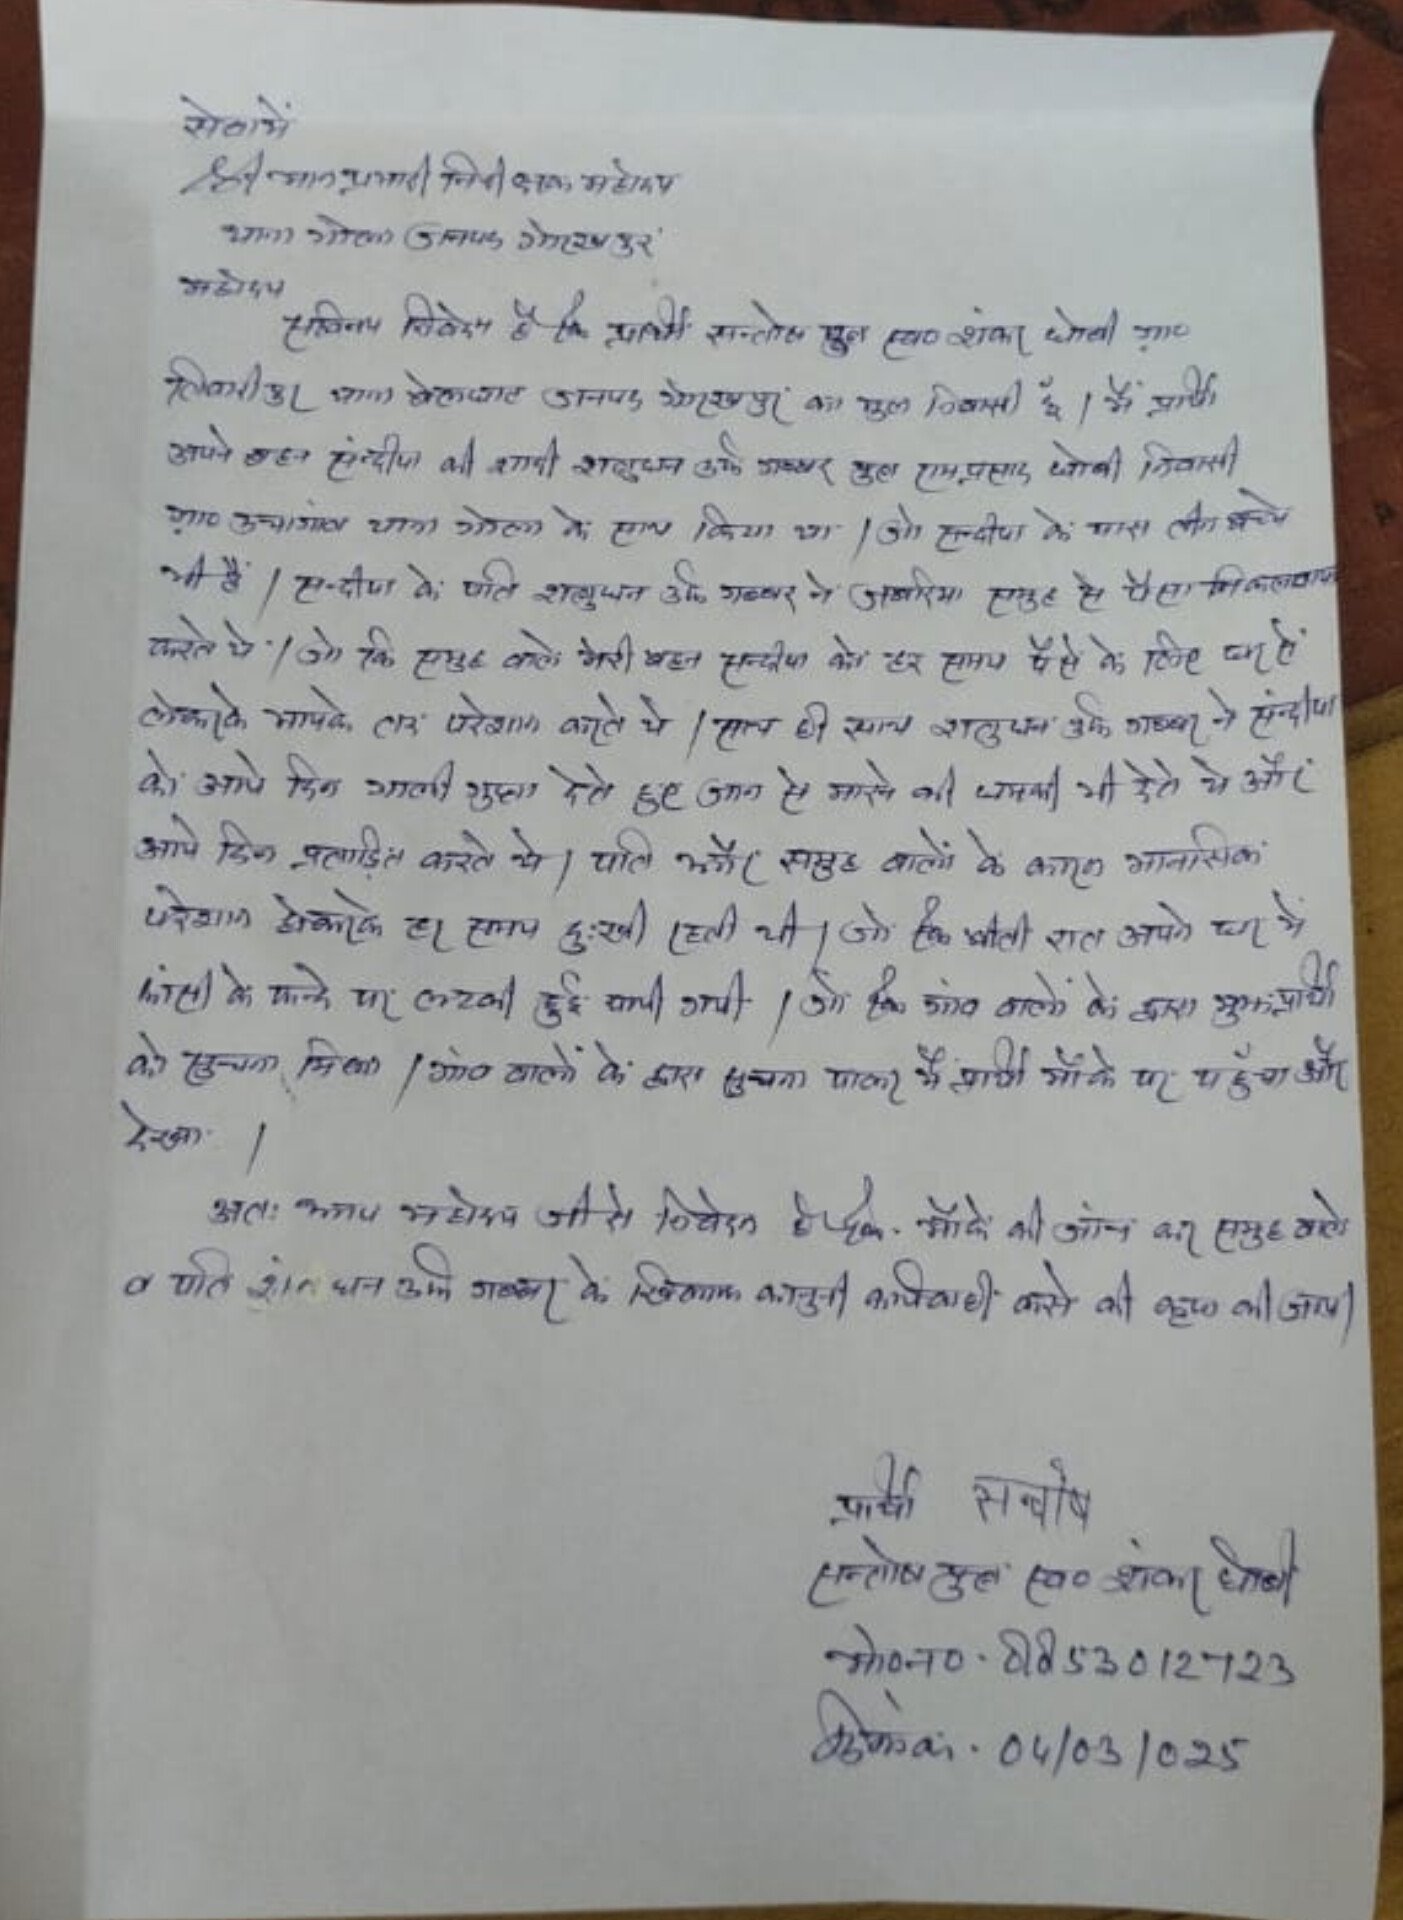 सेवामें
श्रीमान प्रभारी निरीक्षक महोदय
थाना गोला जनपद गोरखपुर
महोदय
सविनय निवेदन है कि प्रार्थी सन्तोष पुत्र स्व० शंकर धोबी ग्रा०
तिवारीपुर थाना बेलघाट जनपद गोरखपुर का मुल निवासी हूँ / मैं प्रार्थी
अपने बहन संन्दीपा की शादी शत्रुधन उर्फ गब्बर पुत्र रामप्रसाद धोबी निवासी
ग्रा० उचागांव थाना गोला के साथ किया था / जो सन्दीपा के पास तीन बच्चे
भी हैं / सन्दीपा के पति शत्रुधन उर्फ गब्बर ने जबरिया समुह से पैसा निकलवाया
करते थे / जो कि समुह वाले मेरी बहन सन्दीपा को हर समय पैसे के लिए घर से
लेकरके मायके तक परेशान करते थे / साथ ही साथ शत्रुधन उर्फ गब्बर ने संन्दीपा
को आये दिन गाली गुप्ता देते हुए जान से मारने की धमकी भी देते थे और
आये दिन प्रताड़ित करते थे / पति और समुह वालों के कारण मानसिक
परेशान होकरके हर समय दुःखी रहती थी / जो कि बीती रात अपने घर में
फांसी के फन्दे पर लटकी हुई पायी गयी / जो कि गांव वालों के द्वारा मुझ प्रार्थी
को सुचना मिला / गांव वालों के द्वारा सुचना पाकर मैं प्रार्थी मौके पर पहुँचा और
देखा /
अतः आप महोदय जी से निवेदन है कि मौके की जांच कर समुह वाले
व पति शत्रुधन उर्फ गब्बर के खिलाफ कानुनी कार्यवाही करने की कृपा की जाय/
प्रार्थी सन्तोष
सन्तोष पुत्र स्व० शंकर धोबी
मो०न० 8853012723
दिनांक 04/03/025